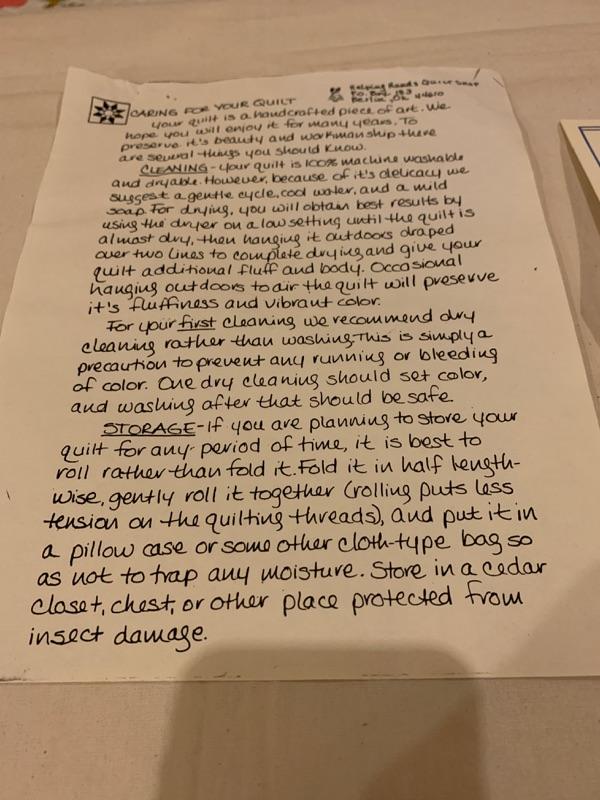 Helping Hands Quilt Shop
P.O. Box 183
Berlin, OH 44610
CARING FOR YOUR QUILT
Your quilt is a handcrafted piece of art. We
hope you will enjoy it for many years. To
preserve it's beauty and workmanship there
are several things you should know.
CLEANING-Your quilt is 100% machine washable
and dryable. However, because of it's delicacy we
suggest a gentle cycle, cool water, and a mild
soap. For drying, you will obtain best results by
using the dryer on a low setting until the quilt is
almost dry, then hanging it outdoors draped
over two lines to complete drying and give your
quilt additional fluff and body. Occasional
hanging outdoors to air the quilt will preserve
it's fluffiness and vibrant color.
For your first cleaning we recommend dry
cleaning rather than washing. This is simply a
precaution to prevent any running or bleeding
of color. One dry cleaning should set color,
and washing after that should be safe.
STORAGE-If you are planning to store your
quilt for any period of time, it is best to
roll rather than fold it. Fold it in half length-
wise, gently roll it together (rolling puts less
tension on the quilting threads), and put it in
a pillow case or some other cloth-type bag so
as not to trap any moisture. Store in a cedar
closet, chest, or other place protected from
insect damage.